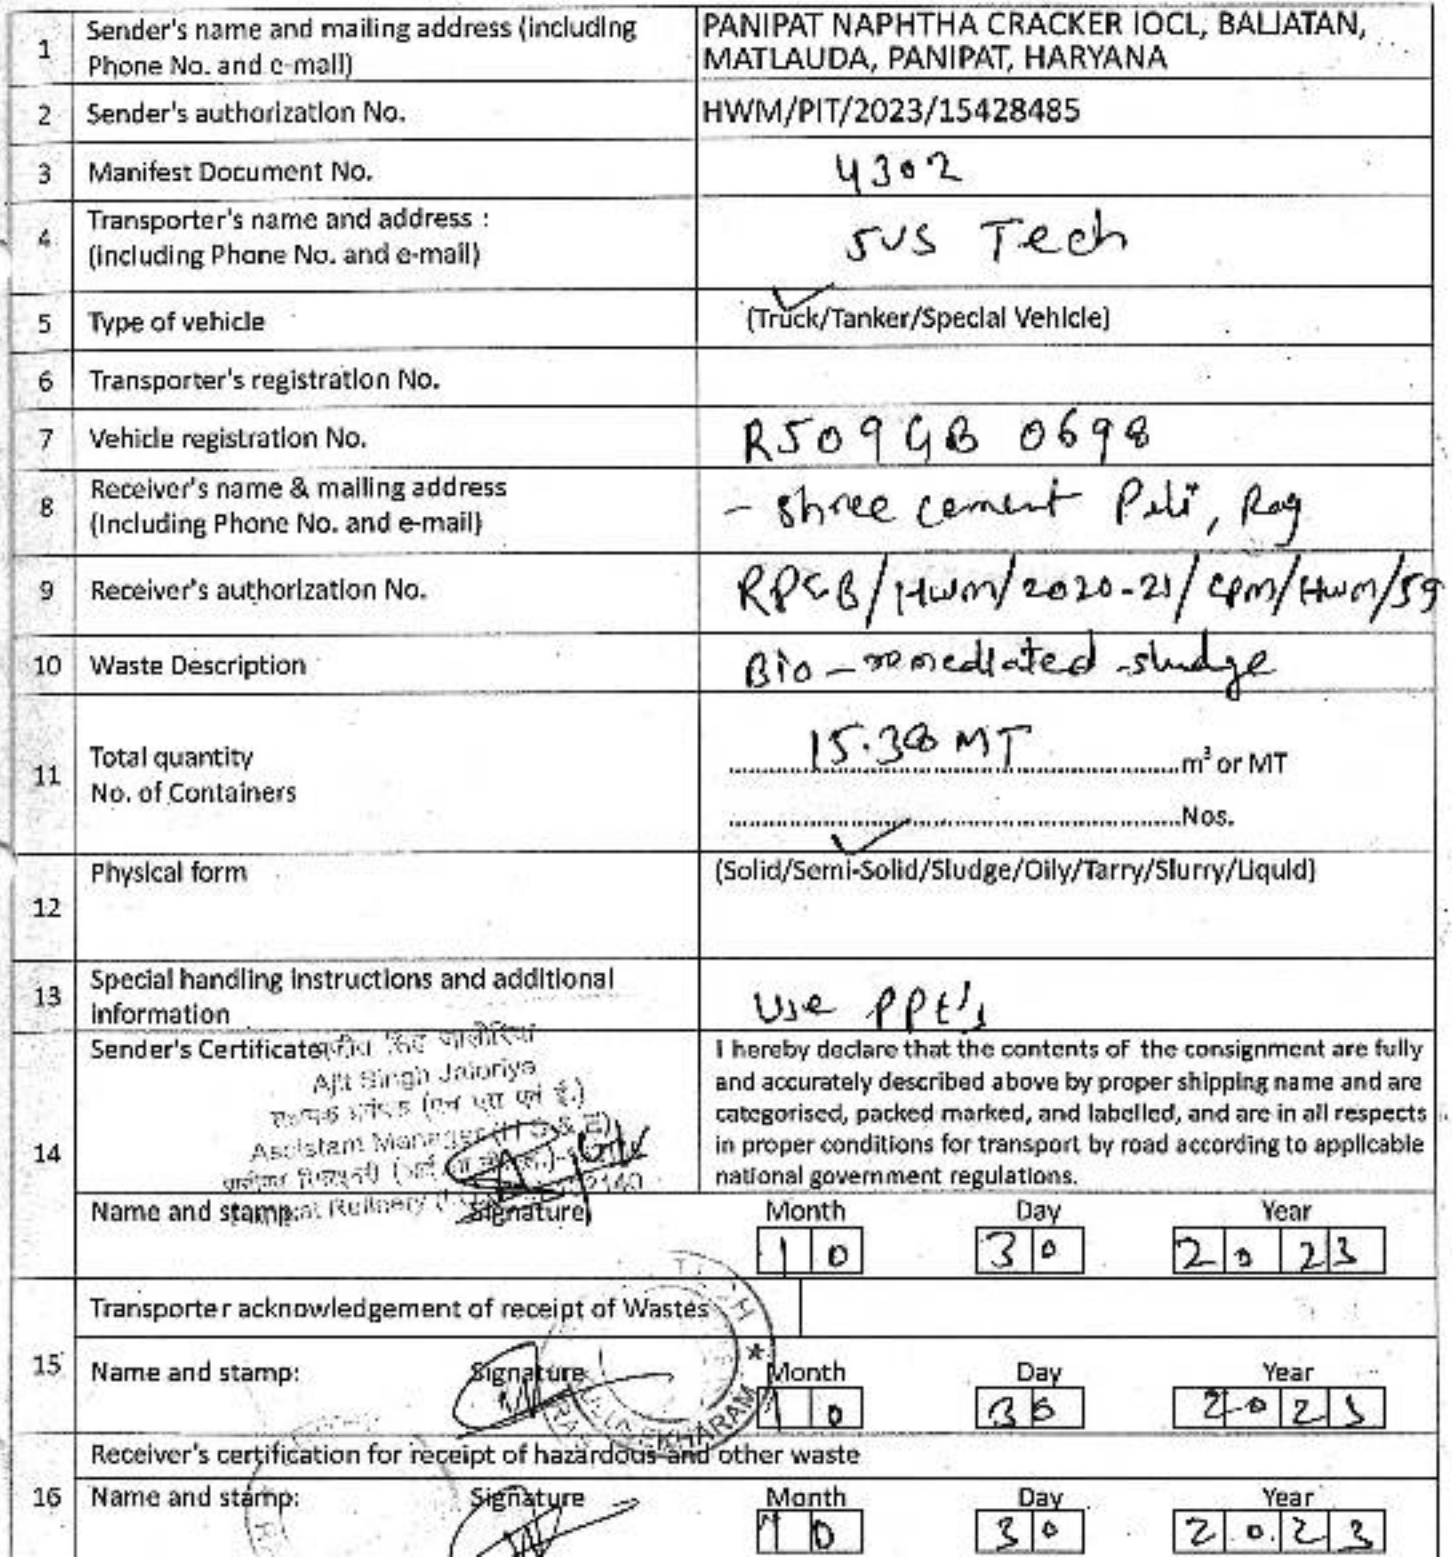 1 Sender's name and mailing address (including Phone No. and e-mail) PANIPAT NAPHTHA CRACKER IOCL, BALJATAN, MATLAUDA, PANIPAT, HARYANA
2 Sender's authorization No. HWM/PIT/2023/15428485
3 Manifest Document No. 4302
4 Transporter's name and address : (including Phone No. and e-mail) SVS Tech
5 Type of vehicle (Truck/Tanker/Special Vehicle)
6 Transporter's registration No.
7 Vehicle registration No. RJ09GB 0698
8 Receiver's name & mailing address (Including Phone No. and e-mail) - Shree cement Pali, Raj
9 Receiver's authorization No. RPCB/HWM/2020-21/CPM/HWM/59
10 Waste Description Bio-remediated sludge
11 Total quantity 15.38 MT m³ or MT
No. of Containers Nos.
12 Physical form (Solid/Semi-Solid/Sludge/Oily/Tarry/Slurry/Liquid)
13 Special handling instructions and additional information Use PPE's
14 Sender's Certificate
Ajit Singh Jaloriya
Assistant Manager (H S & E)
I hereby declare that the contents of the consignment are fully
and accurately described above by proper shipping name and are
categorised, packed marked, and labelled, and are in all respects
in proper conditions for transport by road according to applicable
national government regulations.
Name and stamp: Signature Month Day Year
10 30 2023
Transporter acknowledgement of receipt of Wastes
15 Name and stamp: Signature Month Day Year
10 30 2023
Receiver's certification for receipt of hazardous and other waste
16 Name and stamp: Signature Month Day Year
10 30 2023